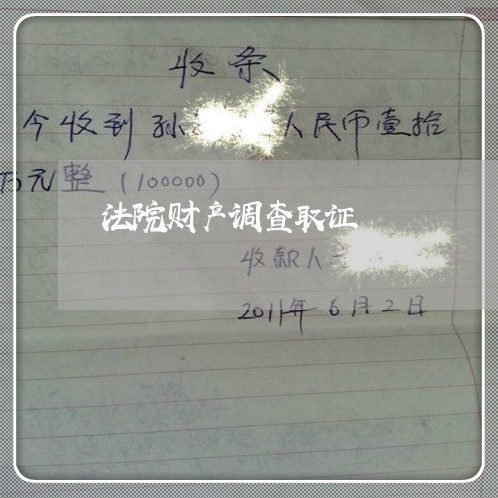 收条
今收到孙 人民币壹拾
万元整（100000）
法院财产调查取证
收款人
2011年6月2日